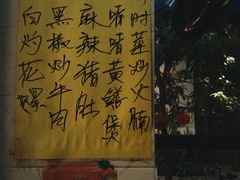 时菜炒火腩
啫啫黄鳝煲
麻辣猪肚
黑椒炒牛肉
白灼花螺